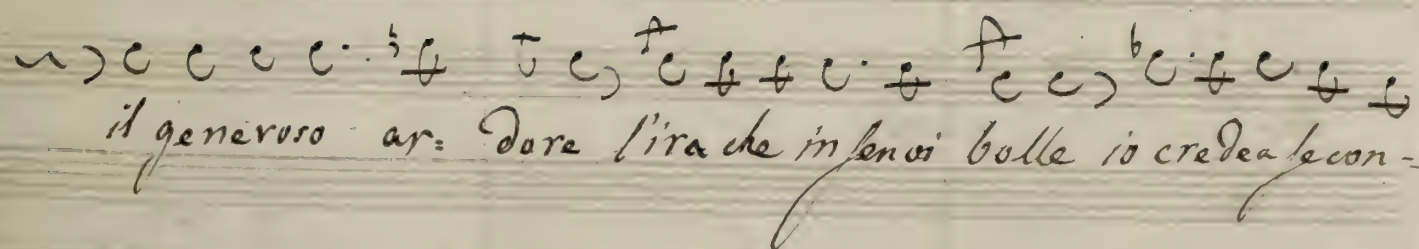 il generoso ar= dore l'ira che in sen vi bolle io credea le con-